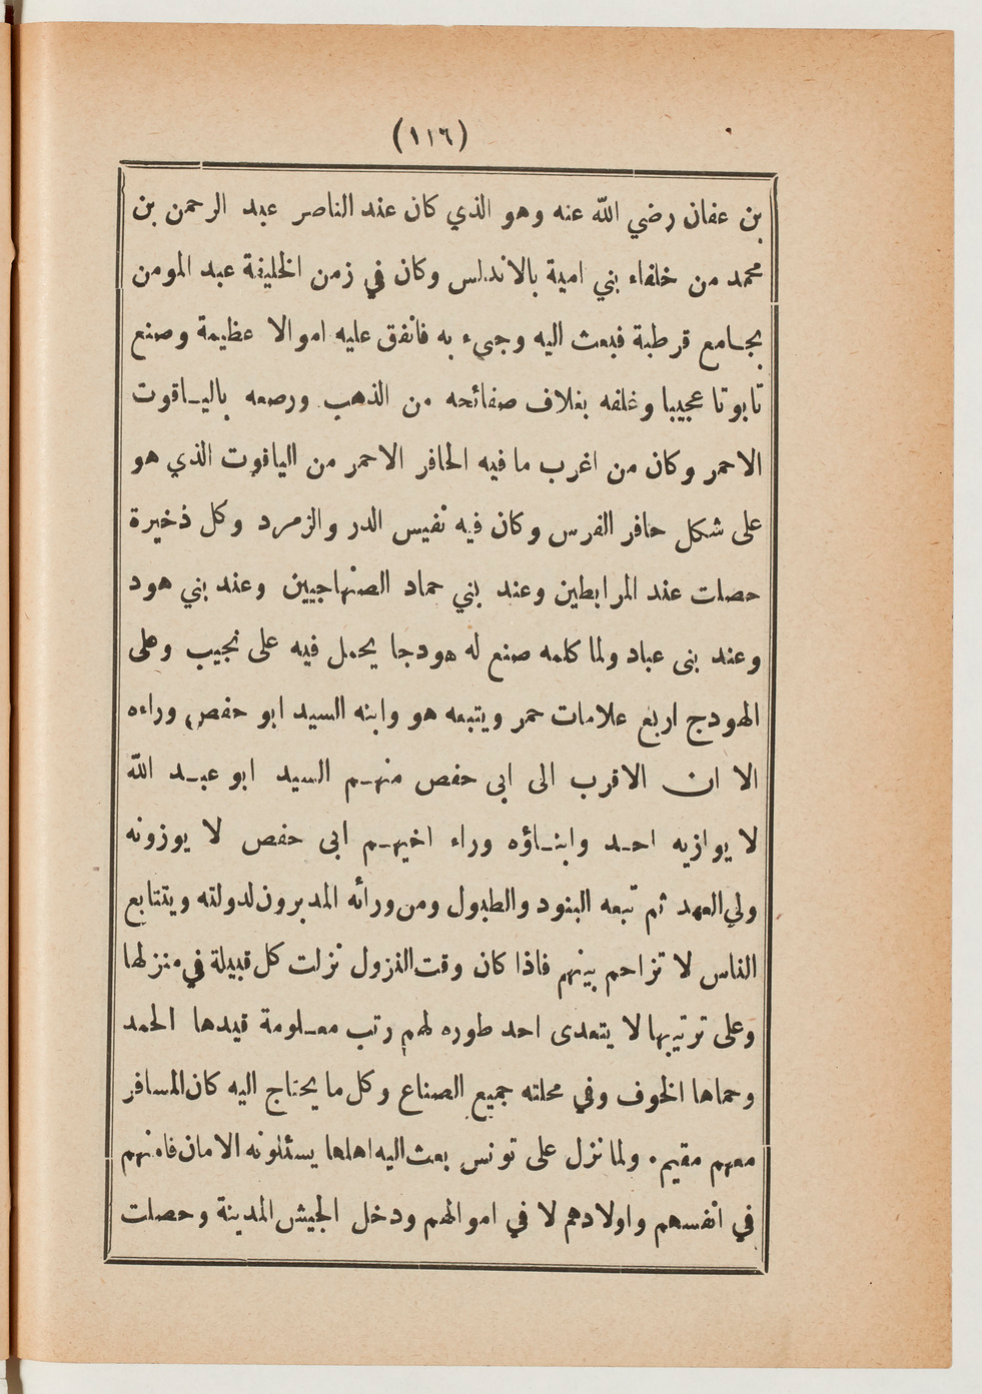 (١١٦)
بن عفان رضي الله عنه وهو الذي كان عند الناصر عبد الرحمن بن
محمد من خلفاء بني امية بالاندلس وكان في زمن الخليفة عبد المومن
بجامع قرطبة فبعث اليه وجيء به فانفق عليه اموالا عظيمة وصنع
تابوتا عجيبا وغلفه بغلاف صفائحه من الذهب ورصعه بالياقوت
الاحمر وكان من اغرب ما فيه الحافر الاحمر من الياقوت الذي هو
على شكل حافر الفرس وكان فيه نفيس الدر والزمرد وكل ذخيرة
حصلت عند المرابطين وعند بني حماد الصنهاجيين وعند بني هود
وعند بنى عباد ولما كلمه صنع له هودجا يحمل فيه على نجيب وعلى
الهودج اربع علامات حمر ويتبعه هو وابنه السيد ابو حفص وراءه
الا ان الاقرب الى ابى حفص منهم السيد ابو عبد الله
لا يوازيه احد وابناؤه وراء اخيهم ابى حفص لا يوزونه
ولي العهد ثم تبعه البنود والطبول ومن ورائه المدبرون لدولته ويتتابع
الناس لا تزاحم بينهم فاذا كان وقت النزول نزلت كل قبيلة في منزلها
وعلى ترتيبها لا يتعدى احد طوره لهم رتب معلومة قيدها الحمد
وحماها الخوف وفي محلته جميع الصناع وكل ما يحتاج اليه كان المسافر
معهم مقيم. ولما نزل على تونس بعث اليه اهلها يسئلونه الامان فامنهم
في انفسهم واولادهم لا في اموالهم ودخل الجيش المدينة وحصلت